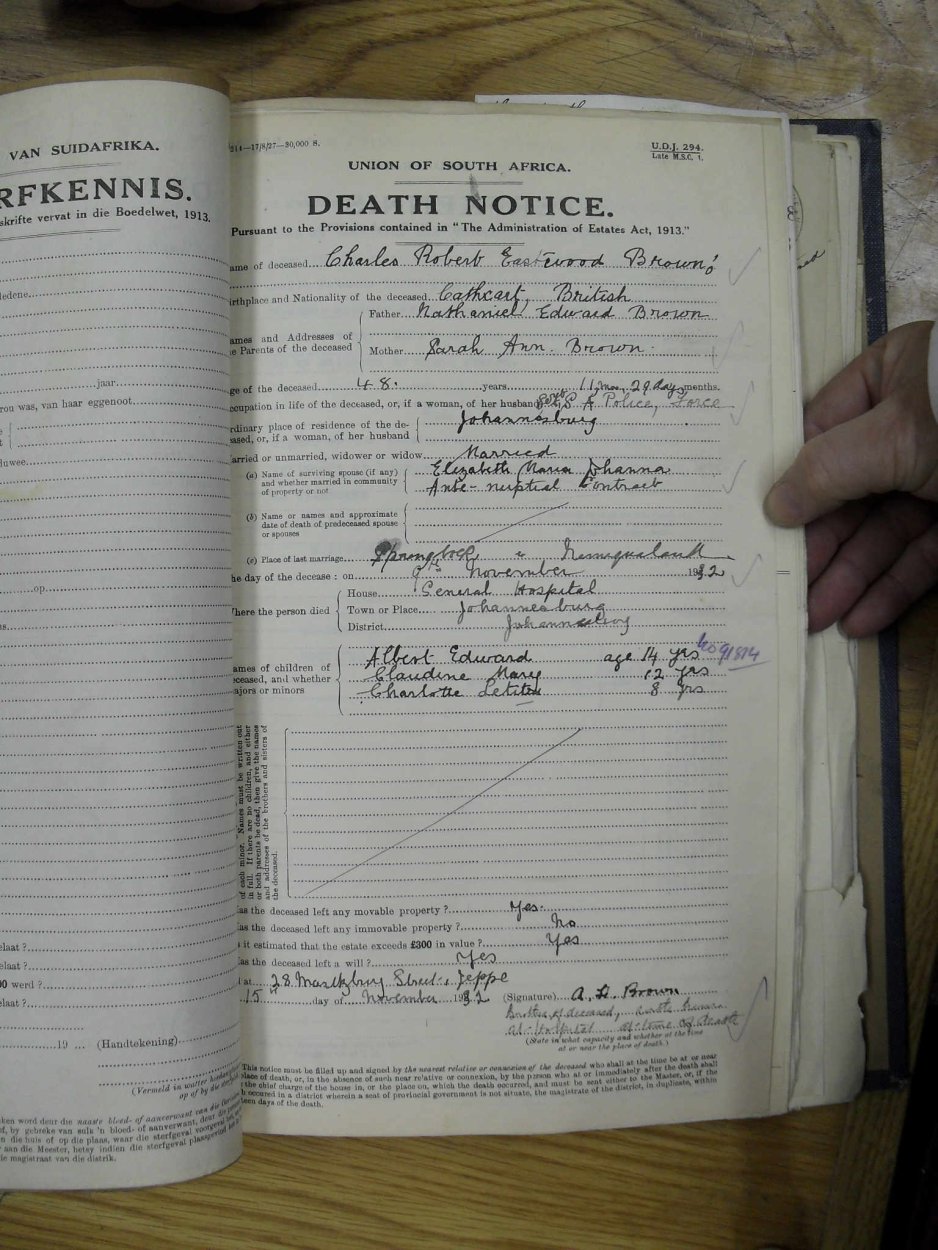 VAN SUIDAFRIKA.
RFKENNIS.
skrifte vervat in die Boedelwet, 1913.
ledene
jaar
rou was, van haar eggenoot
duwee
op
elaat ?
elaat ?
00 werd ?
elaat ?
19 ... (Handtekening)
(Vermeld in watter hoedan
op of by die sterf
ken word deur die naaste bloed- of aanverwant van die
of, by gebreke van sulk 'n bloed- of aanverwant, deur die
n die huis of op die plaas, waar die sterfgeval voorgeval
aan die Meester, hetsy indien die sterfgeval plaasgevind
ie magistraat van die distrik.
—17/8/27—30,000 S.
U.D.J. 294.
Late M.S.C. 1.
UNION OF SOUTH AFRICA.
DEATH NOTICE.
Pursuant to the Provisions contained in "The Administration of Estates Act, 1913."
ame of deceased Charles Robert Eastwood Brown
irthplace and Nationality of the deceased Cathcart, British
ames and Addresses of
e Parents of the deceased
Father Nathaniel Edward Brown
Mother Sarah Ann Brown
ge of the deceased 48. years 11 mos 29 days months.
ccupation in life of the deceased, or, if a woman, of her husband S A Police, Force
rdinary place of residence of the de-
eased, or, if a woman, of her husband
Johannesburg
arried or unmarried, widower or widow Married
(a) Name of surviving spouse (if any)
and whether married in community
of property or not
Elizabeth Maria Johanna
Ante-nuptial Contract
(b) Name or names and approximate
date of death of predeceased spouse
or spouses
(c) Place of last marriage Springbok Namaqualand
he day of the decease : on 9th November 1932
here the person died
House General Hospital
Town or Place Johannesburg
District Johannesburg
ames of children of
eceased, and whether
ajors or minors
Albert Edward age 14 yrs
No 91814
Claudine Mary 12 yrs
Charlotte Letitia 8 yrs
of each minor. (Names must be written out
in full. If there are no children, and either
or both parents be dead, then give the names
and addresses of the brothers and sisters of
the deceased.
as the deceased left any movable property ? Yes.
as the deceased left any immovable property ? No
it estimated that the estate exceeds £300 in value ? Yes
as the deceased left a will ? Yes
at 28 Street, Jeppe
15th day of November 1932 (Signature) A. D. Brown
Brother of deceased,
at hospital at time of death
(State in what capacity and whether at the time
at or near the place of death.)
This notice must be filled up and signed by the nearest relative or connexion of the deceased who shall at the time be at or near
place of death, or, in the absence of such near relative or connexion, by the person who at or immediately after the death shall
the chief charge of the house in, or the place on, which the death occurred, and must be sent either to the Master, or, if the
h occurred in a district wherein a seat of provincial government is not situate, the magistrate of the district, in duplicate, within
teen days of the death.